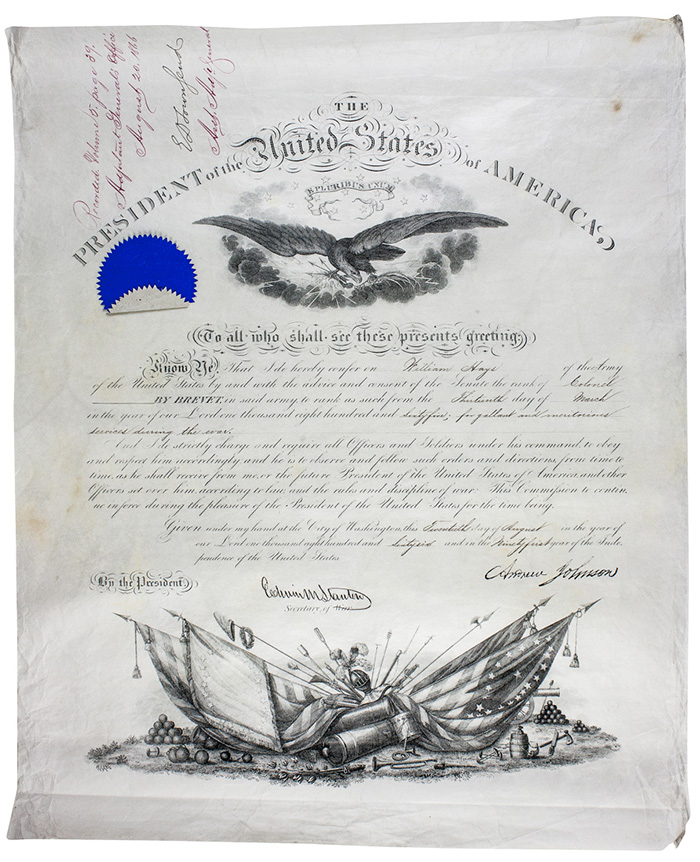 Recorded Volume 5, page 39.
Adjutant General's Office
August 20, 186
E D Townsend
Asst. Adj. General
THE
United States
PRESIDENT of the of AMERICA,
E PLURIBUS UNUM
To all who shall see these presents greeting:
Know Ye, That I do hereby confer on William Hays of the Army
of the United States by and with the advice and consent of the Senate the rank of Colonel
BY BREVET, in said army to rank as such from the thirteenth day of March
in the year of our Lord one thousand eight hundred and sixty five, for gallant and meritorious
services during the war.
And I do strictly charge and require all Officers and Soldiers under his command to obey
and respect him accordingly and he is to observe and follow such orders and directions, from time to
time, as he shall receive from me, or the future President of the United States of America, and other
Officers set over him, according to law, and the rules and discipline of war. This Commission to contin-
ue in force during the pleasure of the President of the United States, for the time being.
Given under my hand at the City of Washington, this Twentieth day of August in the year of
our Lord, one thousand eight hundred and sixty six and in the Ninety first year of the Inde-
pendence of the United States.
Andrew Johnson
By the President,
Edwin M Stanton
Secretary of War.